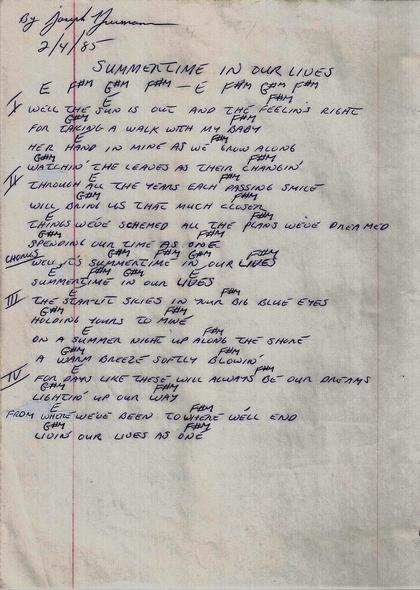 By Joseph
2/4/85
SUMMERTIME IN OUR LIVES
E F#M G#M F#M — E F#M G#M F#M
E F#M
I WELL THE SUN IS OUT AND THE FEELIN'S RIGHT
G#M F#M
FOR TAKING A WALK WITH MY BABY
E F#M
HER HAND IN MINE AS WE GROW ALONG
G#M F#M
WATCHIN' THE LEAVES AS THEIR CHANGIN'
E F#M
II THROUGH ALL THE YEARS EACH PASSING SMILE
G#M F#M
WILL BRING US THAT MUCH CLOSER
E F#M
THINGS WE'VE SCHEMED ALL THE PLANS WE'VE DREAMED
G#M F#M
SPENDING OUR TIME AS ONE
CHORUS E G#M F#M G#M F#M
WELL IT'S SUMMERTIME IN OUR LIVES
E F#M G#M E
SUMMERTIME IN OUR LIVES
E F#M
III THE STARLIT SKIES IN YOUR BIG BLUE EYES
G#M F#M
HOLDING YOURS TO MINE
E F#M
ON A SUMMER NIGHT UP ALONG THE SHORE
G#M F#M
A WARM BREEZE SOFTLY BLOWIN'
E F#M
IV FOR DAYS LIKE THESE WILL ALWAYS BE OUR DREAMS
G#M F#M
LIGHTIN' UP OUR WAY
E F#M
FROM WHERE WE'VE BEEN TO WHERE WE'LL END
G#M F#M
LIVIN' OUR LIVES AS ONE